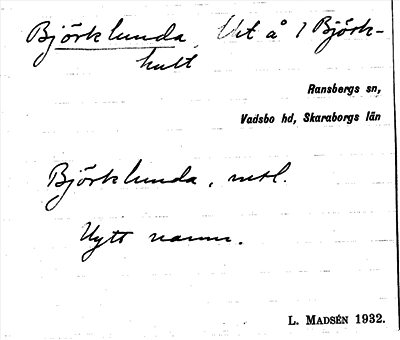 Björklunda, Utt å 1 Björk-
hult
Ransbergs sn,
Vadsbo hd, Skaraborgs län
Björklunda, mtl.
Nytt namn.
L. MADSÉN 1932.